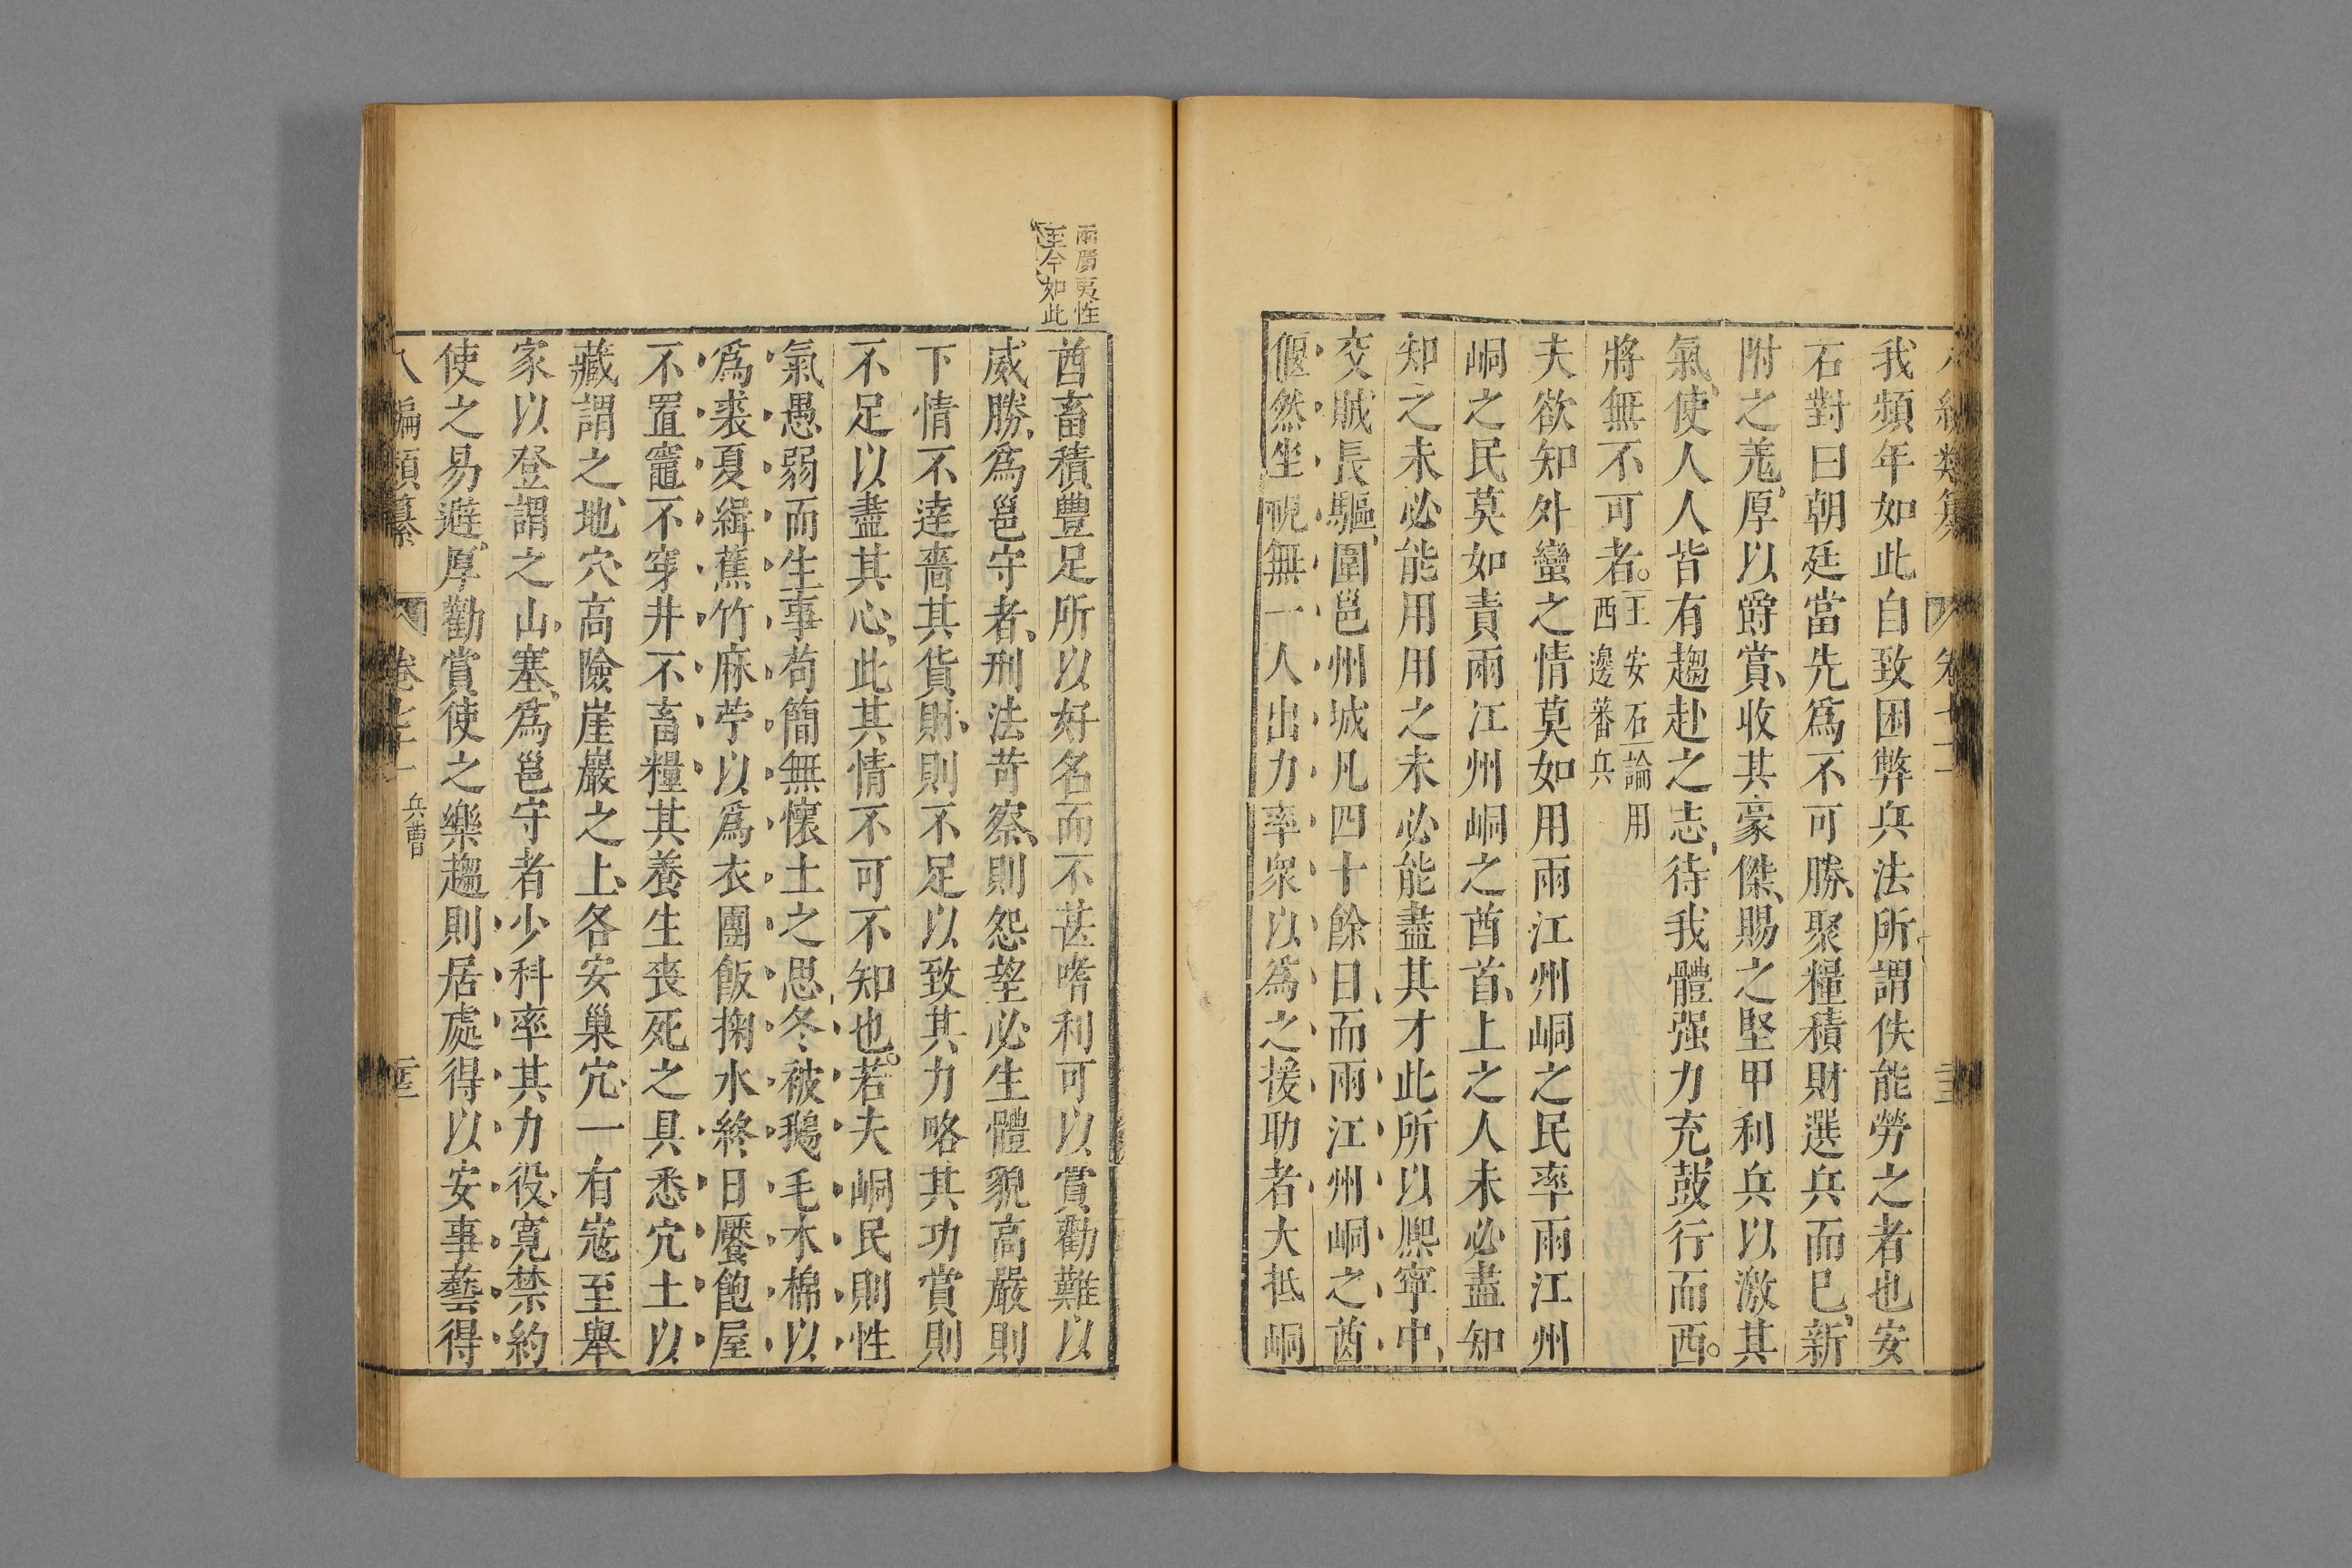 我頻年如此自致困弊兵法所謂佚能勞之者也安
石對曰朝廷當先爲不可勝聚糧積財選兵而已新
附之羗厚以爵賞收其豪傑賜之堅甲利兵以激其
氣使人人皆有趨赴之志待我體强力充鼓行而西
將無不可者王安石論用西邊蕃兵
夫欲知外蠻之情莫如用兩江州峒之民率兩江州
峒之民莫如責兩江州峒之酋首上之人未必盡知
知之未必能用用之未必能盡其才此所以熈寧中
交賊長驅圍邕州城凡四十餘日而兩江州峒之酋
偃然坐視無一人出力率衆以爲之援助者大抵峒
兩廣夷性
至今如此
酋畜積豐足所以好名而不甚嗜利可以賞勸難以
威勝爲邕守者刑法苛察則怨望必生體貌高嚴則
下情不達嗇其貨財則不足以致其力略其功賞則
不足以盡其心此其情不可不知也若夫峒民則性
氣愚弱而生事苟簡無懷土之思冬被鵝毛木棉以
爲裘夏緝蕉竹麻苧以爲衣團飯掬水終日饜飽屋
不置竈不穿井不畜糧其養生喪死之具悉穴土以
藏謂之地穴高險崖巖之上各安巢穴一有寇至舉
家以登謂之山塞爲邕守者少科率其力役寛禁約
使之易避厚勸賞使之樂趨則居處得以安事藝得
八編類纂 卷七十一 兵曹